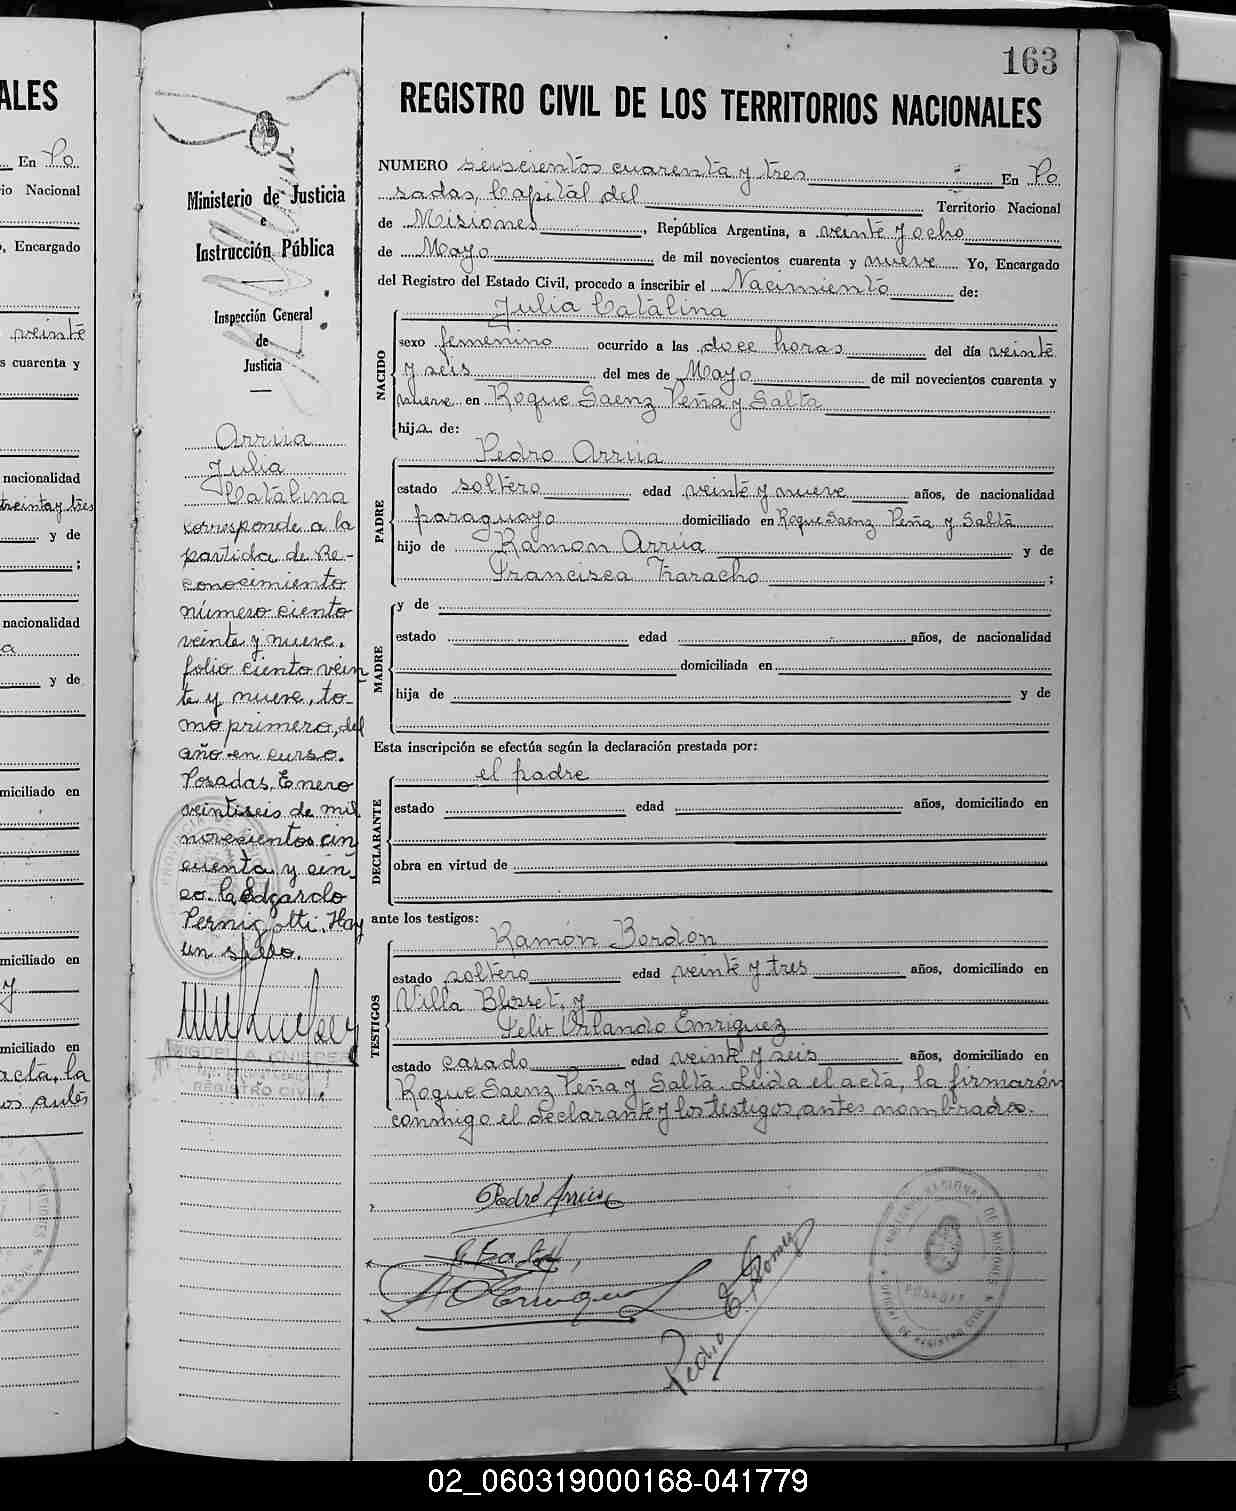 163
ALES
En Po
io Nacional
, Encargado
veinte
s cuarenta y
nacionalidad
treinta y tres
y de
;
nacionalidad
a
y de
miciliado en
miciliado en
y
miciliado en
acta, la
os antes
Ministerio de Justicia
e
Instrucción Pública
Inspección General
de
Justicia
Arrúa
Julia
Catalina
corresponde a la
partida de Re-
conocimiento
número ciento
veinte y nueve,
folio ciento vein
te y nueve, to-
mo primero, del
año en curso.
Posadas, Enero
veintiseis de mil
novecientos cin
cuenta y cin-
co. Edgardo
Pernigotti. Hay
un sello.
REGISTRO CIVIL
REGISTRO CIVIL DE LOS TERRITORIOS NACIONALES
NUMERO seiscientos cuarenta y tres En Po
sadas, Capital del Territorio Nacional
de Misiones, República Argentina, a veinte y ocho
de Mayo de mil novecientos cuarenta y nueve Yo, Encargado
del Registro del Estado Civil, procedo a inscribir el Nacimiento de:
NACIDO
Julia Catalina
sexo femenino ocurrido a las doce horas del día veinte
y seis del mes de Mayo de mil novecientos cuarenta y
nueve en Roque Saenz Peña y Salta
hija de:
PADRE
Pedro Arrúa
estado soltero edad veinte y nueve años, de nacionalidad
paraguayo domiciliado en Roque Saenz Peña y Salta
hijo de Ramon Arrúa y de
Francisca Traracho;
MADRE
y de
estado edad años, de nacionalidad
domiciliada en
hija de y de
Esta inscripción se efectúa según la declaración prestada por:
DECLARANTE
el padre
estado edad años, domiciliado en
obra en virtud de
ante los testigos:
TESTIGOS
Ramón Bordón
estado soltero edad veinte y tres años, domiciliado en
Villa Blosset, y
Felix Orlando Enriquez
estado casado edad veinte y seis años, domiciliado en
Roque Saenz Peña y Salta. Leida el acta, la firmarón
conmigo el declarante y los testigos antes nombrados.
Pedro Arrúa
Pedro E. Gomez
POSADAS
02_060319000168-041779